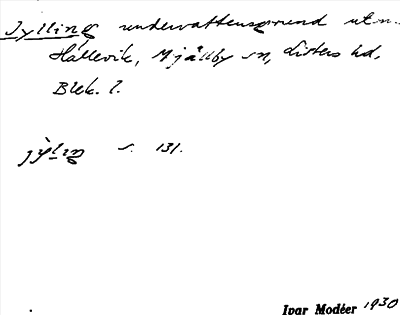 Jylling undervattensgrund ut.n.
Hällevik, Mjällby sn, Listers hd,
Blek. l.
jỳlɩŋ s. 131.
Ivar Modéer 1930